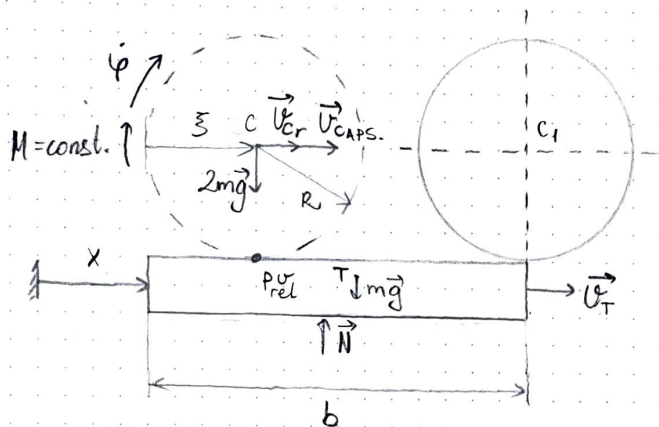 φ̇
M=const.
ξ
C
v⃗Cr
v⃗CAPS.
C₁
2mg⃗
R
x
Pᵛrel
T
mg⃗
v⃗T
N⃗
b